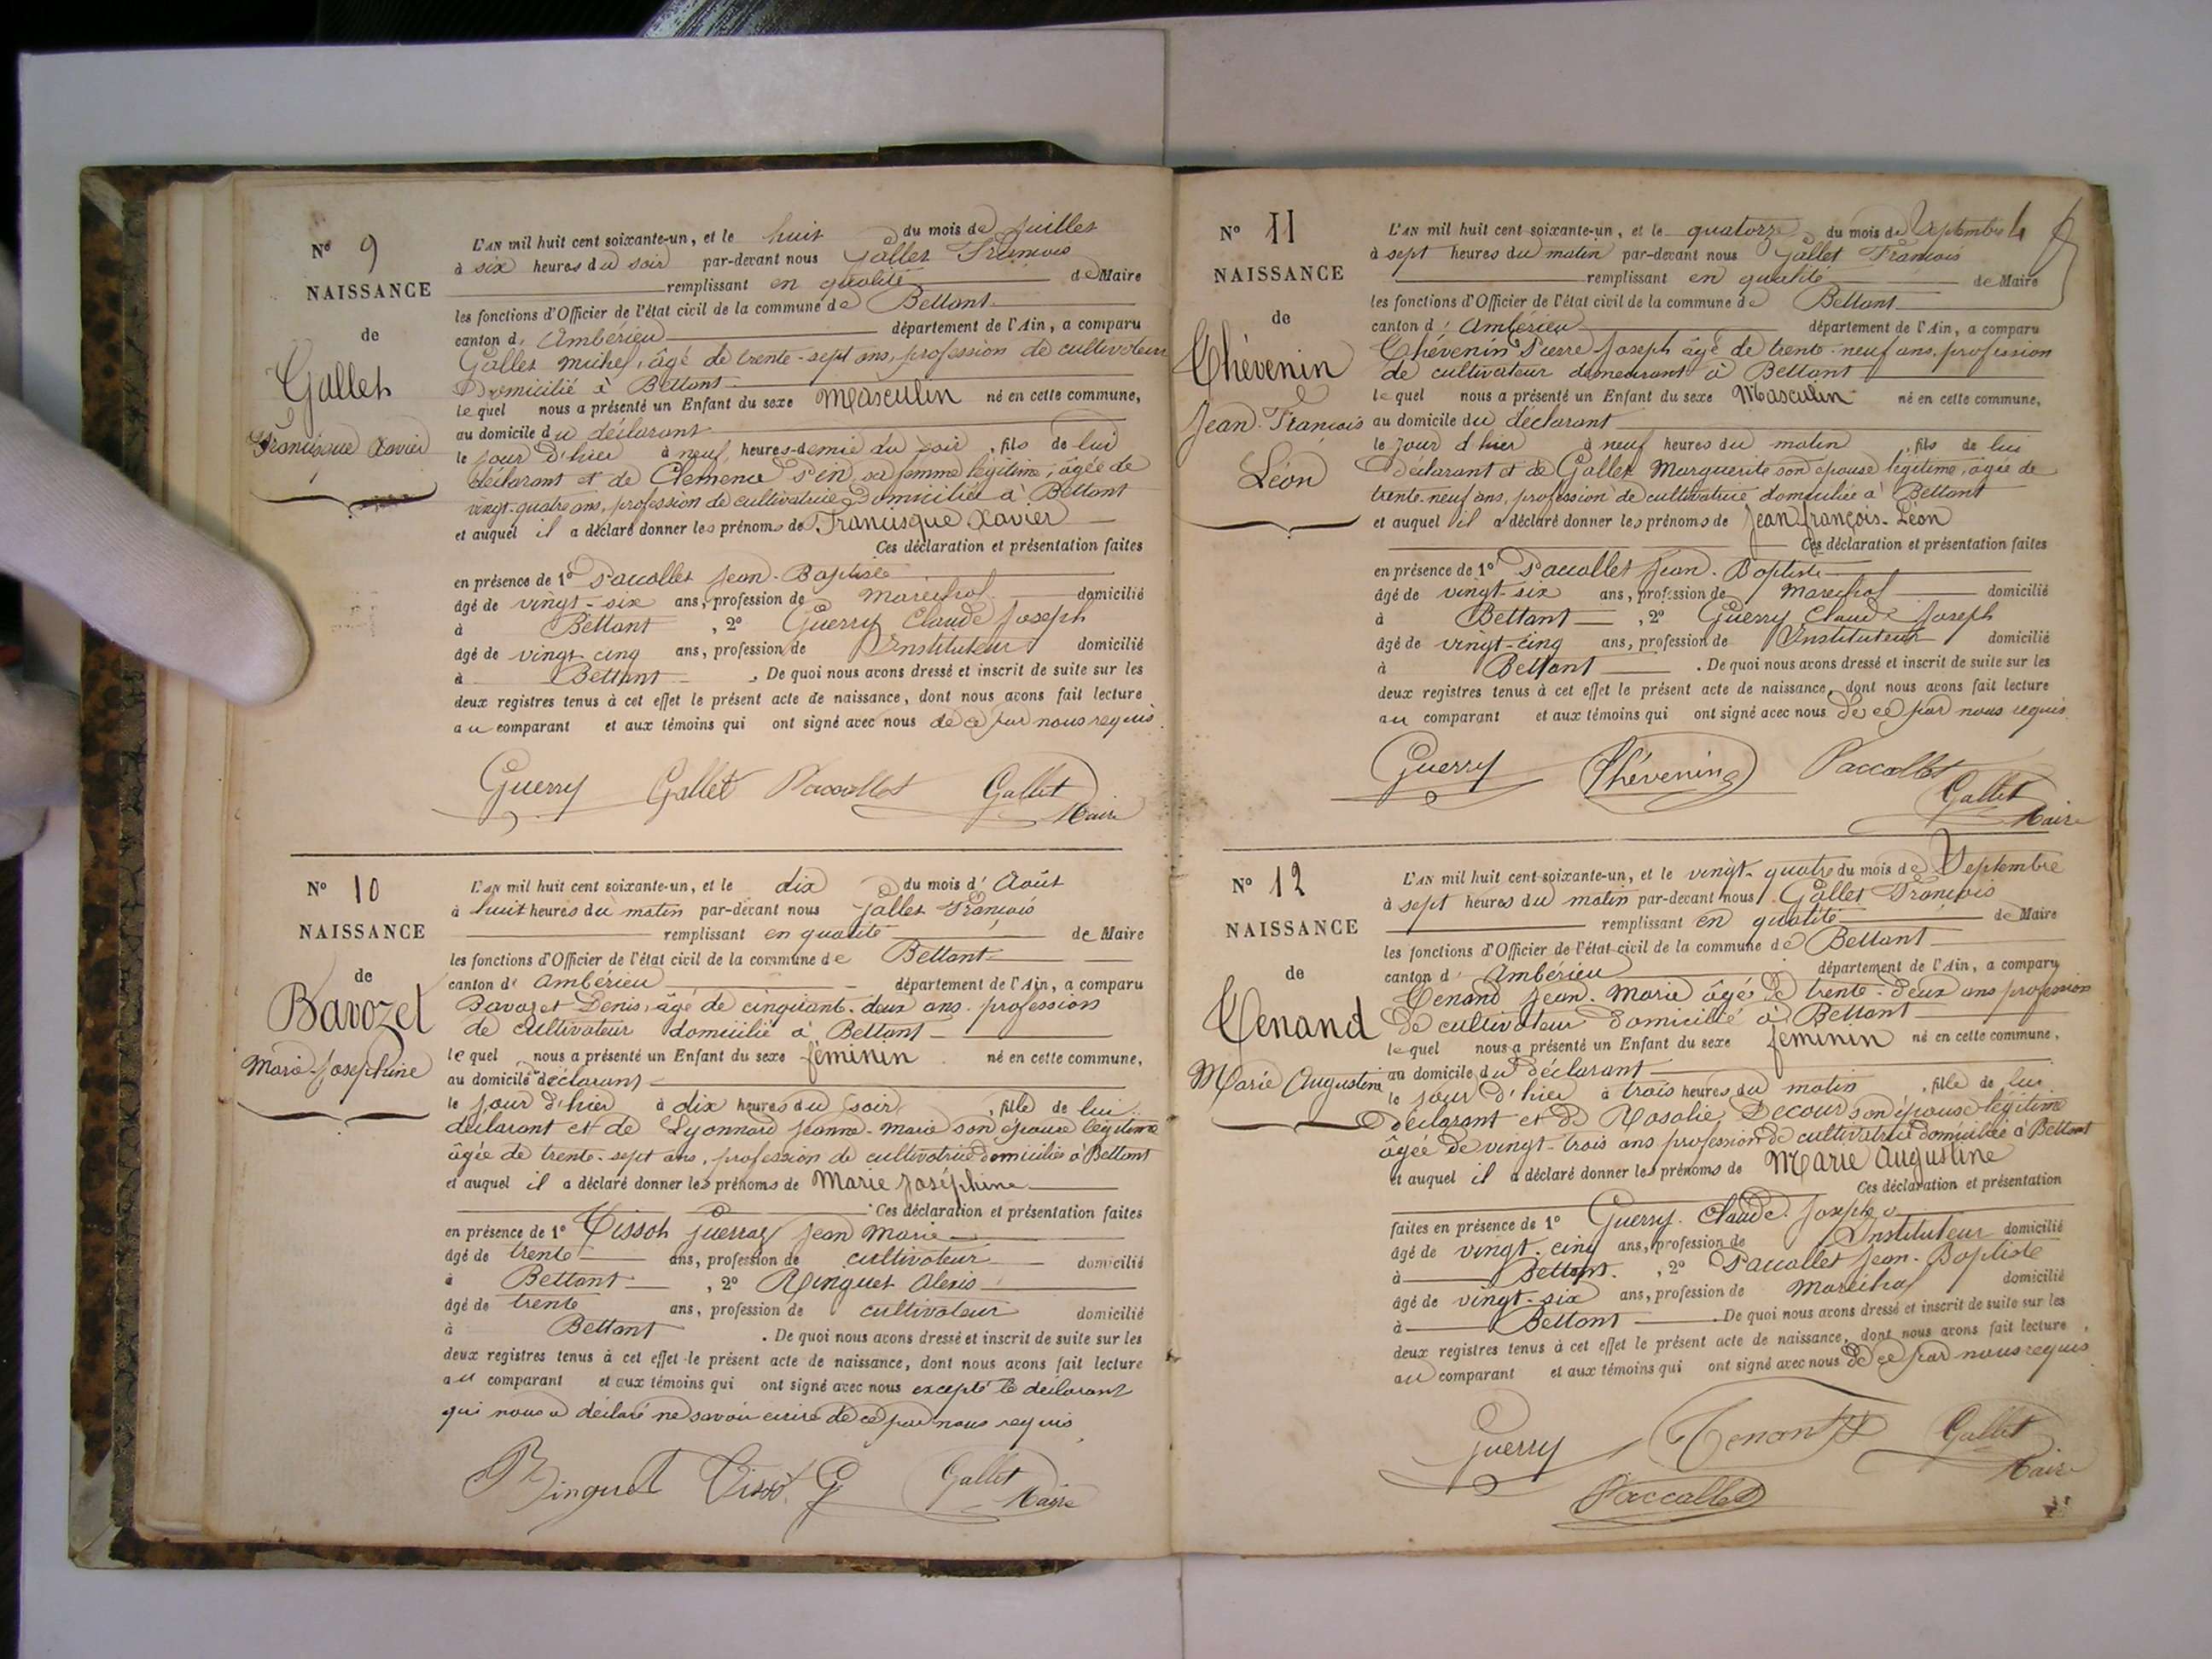 N° 9
NAISSANCE
de
Gallet
Francisque Xavier
L'AN mil huit cent soixante-un, et le huit du mois de juillet
à six heures du soir par-devant nous Gallet François
remplissant en qualité de Maire
les fonctions d'Officier de l'état civil de la commune de Bettant
canton d' Ambérieu département de l'Ain, a comparu
Gallet Michel, âgé de trente-sept ans, profession de cultivateur
Domicilié à Bettant
lequel nous a présenté un Enfant du sexe Masculin né en cette commune,
au domicile du déclarant
le jour d'hier à neuf heures-demie du soir, fils de lui
déclarant et de Clémence sa femme légitime, âgée de
vingt-quatre ans, profession de cultivatrice Domiciliée à Bettant
et auquel il a déclaré donner les prénoms de Francisque Xavier
Ces déclaration et présentation faites
en présence de 1° Paccallet Jean-Baptiste
âgé de vingt-six ans, profession de Maréchal domicilié
à Bettant, 2° Guerry Claude Joseph
âgé de vingt cinq ans, profession de Instituteur domicilié
à Bettant. De quoi nous avons dressé et inscrit de suite sur les
deux registres tenus à cet effet le présent acte de naissance, dont nous avons fait lecture
au comparant et aux témoins qui ont signé avec nous de ce par nous requis.
Guerry Gallet Paccallet Gallet
Maire
N° 10
NAISSANCE
de
Bavozet
Marie-Josephine
L'AN mil huit cent soixante-un, et le dix du mois d' Août
à huit heures du matin par-devant nous Gallet François
remplissant en qualité de Maire
les fonctions d'Officier de l'état civil de la commune de Bettant
canton d' Ambérieu département de l'Ain, a comparu
Bavozet Denis, âgé de cinquante-deux ans, profession
de cultivateur domicilié à Bettant
lequel nous a présenté un Enfant du sexe féminin né en cette commune,
au domicile du déclarant
le jour d'hier à dix heures du soir, fille de lui
déclarant et de Lyonnard Jeanne-Marie son épouse légitime
âgée de trente-sept ans, profession de cultivatrice domiciliée à Bettant
et auquel il a déclaré donner les prénoms de Marie Joséphine
Ces déclaration et présentation faites
en présence de 1° Tissot Jean Marie
âgé de trente ans, profession de cultivateur domicilié
à Bettant, 2° Ringuet Alexis
âgé de trente ans, profession de cultivateur domicilié
à Bettant. De quoi nous avons dressé et inscrit de suite sur les
deux registres tenus à cet effet le présent acte de naissance, dont nous avons fait lecture
au comparant et aux témoins qui ont signé avec nous excepté le déclarant
qui nous a déclaré ne savoir écrire de ce par nous requis
Ringuet Tissot G Gallet
Maire
N° 11
NAISSANCE
de
Thévenin
Jean-François
Léon
L'AN mil huit cent soixante-un, et le quatorze du mois de Septembre
à sept heures du matin par-devant nous Gallet François
remplissant en qualité de Maire
les fonctions d'Officier de l'état civil de la commune de Bettant
canton d' Ambérieu département de l'Ain, a comparu
Thévenin Pierre-Joseph âgé de trente-neuf ans, profession
de cultivateur demeurant à Bettant
lequel nous a présenté un Enfant du sexe Masculin né en cette commune,
au domicile du déclarant
le jour d'hier à neuf heures du matin, fils de lui
Déclarant et de Gallet Marguerite son épouse légitime, âgée de
trente-neuf ans, profession de cultivatrice domiciliée à Bettant
et auquel il a déclaré donner les prénoms de Jean françois-Léon
Ces déclaration et présentation faites
en présence de 1° Paccallet Jean-Baptiste
âgé de vingt-six ans, profession de Maréchal domicilié
à Bettant, 2° Guerry Claude Joseph
âgé de vingt-cinq ans, profession de Instituteur domicilié
à Bettant. De quoi nous avons dressé et inscrit de suite sur les
deux registres tenus à cet effet le présent acte de naissance, dont nous avons fait lecture
au comparant et aux témoins qui ont signé avec nous de ce par nous requis
Guerry Thévenin Paccallet
Gallet
Maire
N° 12
NAISSANCE
de
Tenand
Marie Augustine
L'AN mil huit cent soixante-un, et le vingt-quatre du mois de Septembre
à sept heures du matin par-devant nous Gallet François
remplissant en qualité de Maire
les fonctions d'Officier de l'état civil de la commune de Bettant
canton d' Ambérieu département de l'Ain, a comparu
Tenand Jean-Marie âgé de trente-deux ans profession
de cultivateur domicilié à Bettant
lequel nous a présenté un Enfant du sexe féminin né en cette commune,
au domicile du déclarant
le jour d'hier à trois heures du matin, fille de lui
Déclarant et de Rosalie Decour son épouse légitime
âgée de vingt-trois ans profession de cultivatrice domiciliée à Bettant
et auquel il a déclaré donner les prénoms de Marie Augustine
Ces déclaration et présentation
faites en présence de 1° Guerry Claude Joseph
âgé de vingt-cinq ans, profession de Instituteur domicilié
à Bettant, 2° Paccallet Jean-Baptiste
âgé de vingt-six ans, profession de Maréchal domicilié
à Bettant. De quoi nous avons dressé et inscrit de suite sur les
deux registres tenus à cet effet le présent acte de naissance, dont nous avons fait lecture
au comparant et aux témoins qui ont signé avec nous de ce par nous requis
Guerry Tenand Gallet
Maire
Paccallet